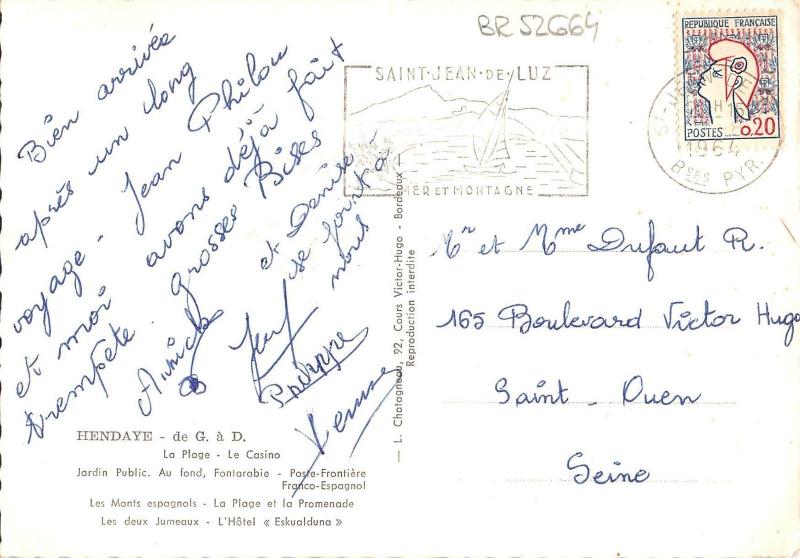 BR 52664
RÉPUBLIQUE FRANÇAISE
POSTES
0,20
SAINT·JEAN·DE·LUZ
MER ET MONTAGNE
1964
Bses PYR.
Bien arrivés
après un long
voyage. Jean Philou
et moi avons déjà fait
trempête. Grosses Bises
Annick et Denise
se joint à
nous
Philippe
Mr et Mme Dufaut R.
165 Boulevard Victor Hugo
Saint-Ouen
Seine
HENDAYE - de G. à D.
La Plage - Le Casino
Jardin Public. Au fond, Fontarabie - Poste-Frontière
Franco-Espagnol
Les Monts espagnols - La Plage et la Promenade
Les deux Jumeaux - L'Hôtel « Eskualduna »
— L. Chatagneau, 92, Cours Victor-Hugo - Bordeaux —
Reproduction interdite